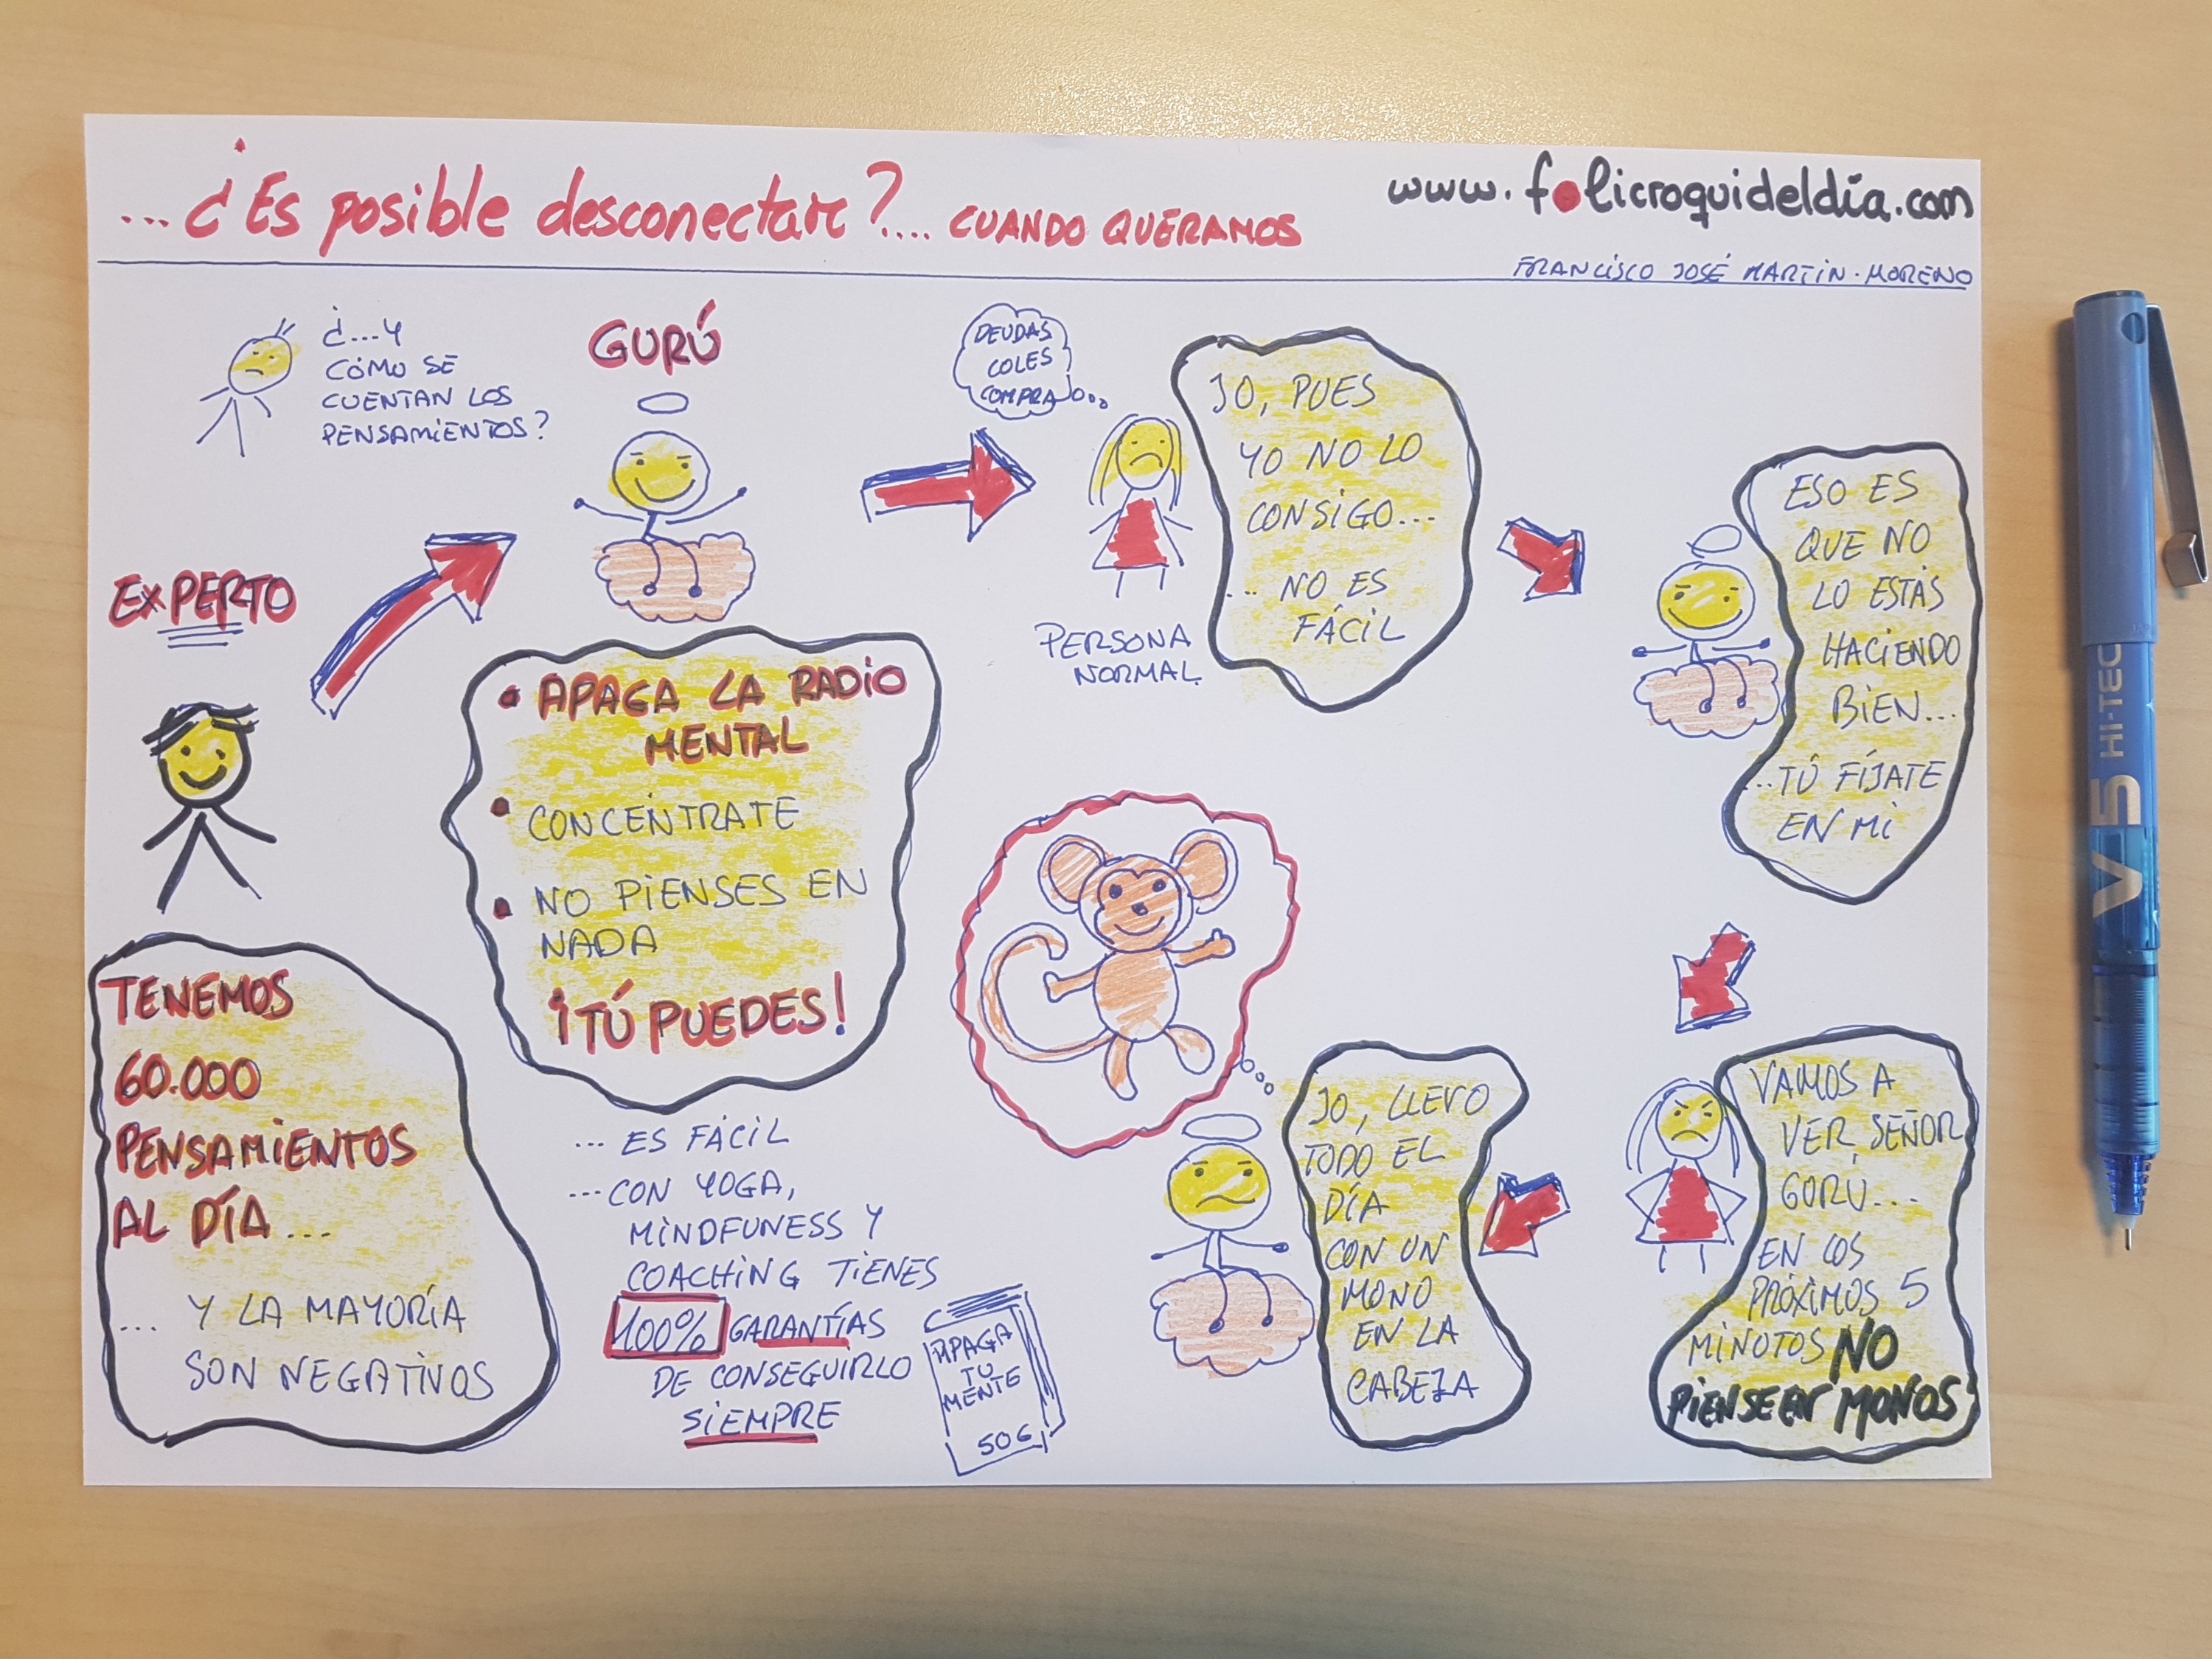 ...¿Es posible desconectar?.... CUANDO QUERAMOS
www.folicroquideldía.com
FRANCISCO JOSÉ MARTIN-MORENO
¿...Y
CÓMO SE
CUENTAN LOS
PENSAMIENTOS?
EXPERTO
TENEMOS
60.000
PENSAMIENTOS
AL DÍA...
... Y LA MAYORÍA
SON NEGATIVOS
GURÚ
• APAGA LA RADIO
MENTAL
• CONCENTRATE
• NO PIENSES EN
NADA
¡TÚ PUEDES!
... ES FÁCIL
...CON YOGA,
MINDFUNESS Y
COACHING TIENES
100% GARANTÍAS
DE CONSEGUIRLO
SIEMPRE
APAGA
TU
MENTE
50€
DEUDAS
COLES
COMPRA
PERSONA
NORMAL
JO, PUES
YO NO LO
CONSIGO...
... NO ES
FÁCIL
ESO ES
QUE NO
LO ESTÁS
HACIENDO
BIEN...
...TÚ FÍJATE
EN MI
VAMOS A
VER, SEÑOR
GORÚ...
EN LOS
PRÓXIMOS 5
MINUTOS NO
PIENSE EN MONOS
JO, LLEVO
TODO EL
DÍA
CON UN
MONO
EN LA
CABEZA
V5 HI-TEC